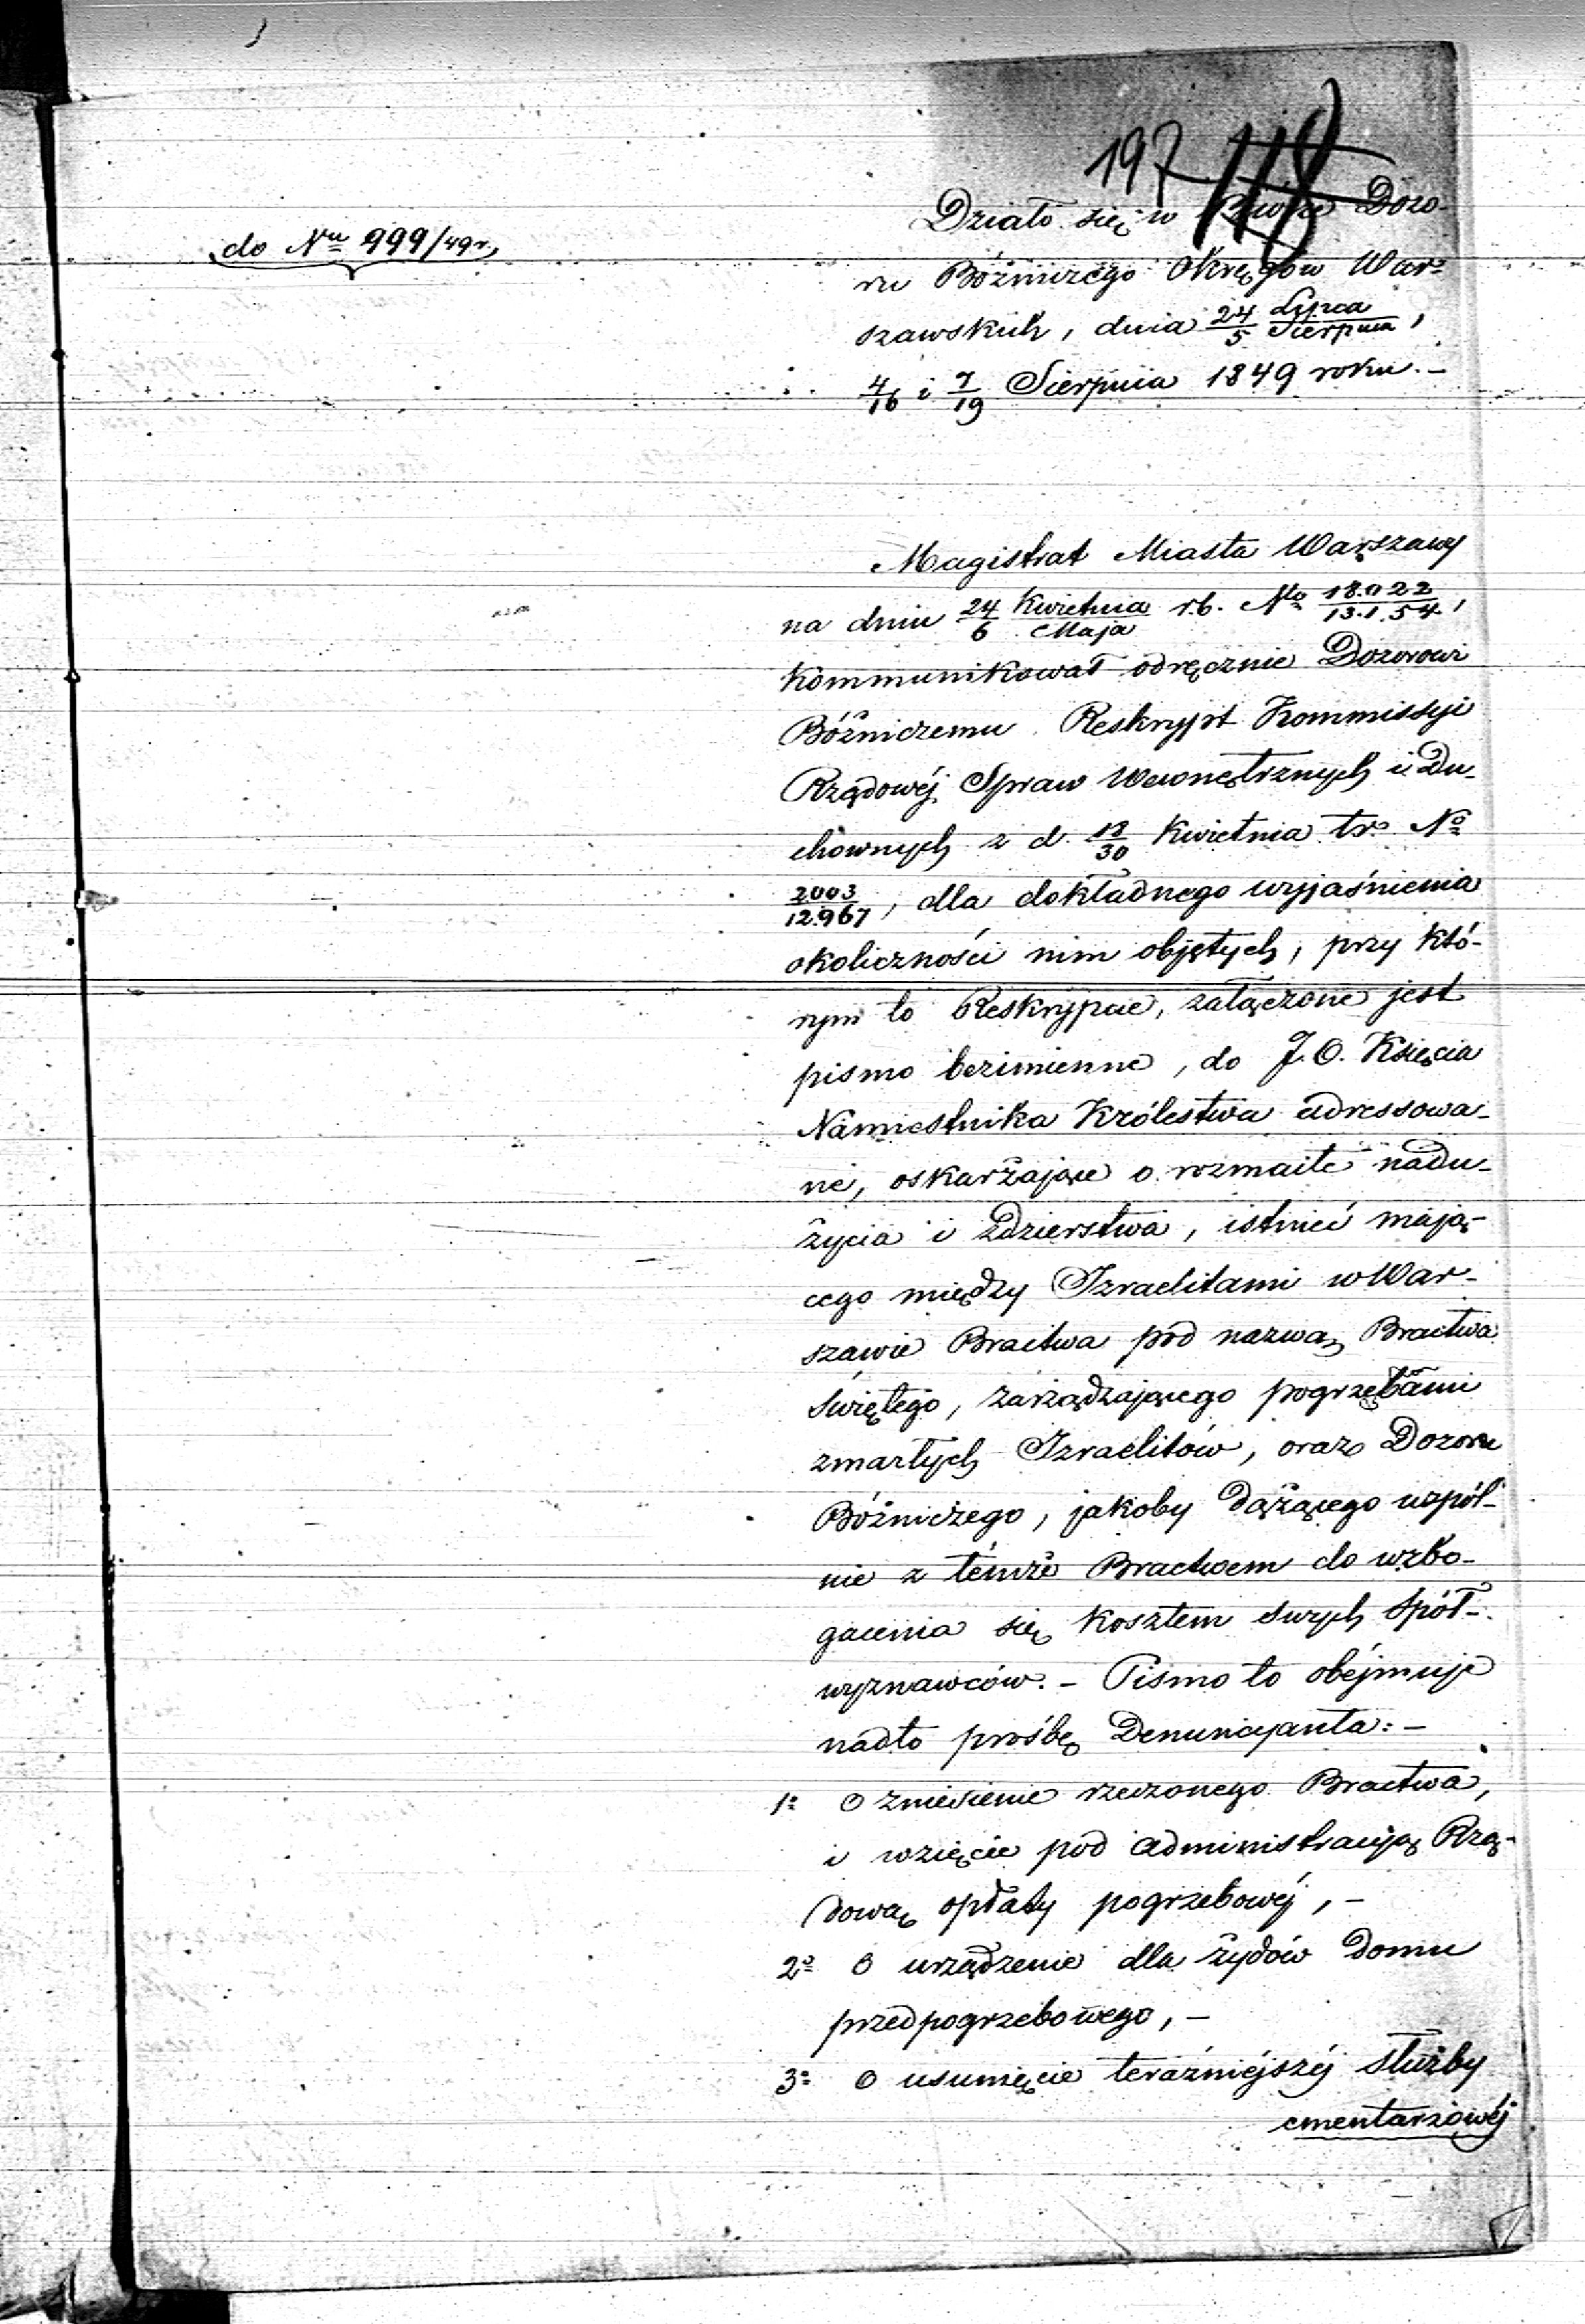 197 118
do Nru 999/49 r.
Działo się w Biórze Dozo-
ru Bóźniczego Okręgów War-
szawskich, dnia 24/5 Lipca/Sierpnia,
4/16 i 7/19 Sierpnia 1849 roku. -
Magistrat Miasta Warszawy
na dniu 24/6 Kwietnia/Maja r.b. No 18.022/13.1.54,
kommunikował odręcznie Dozorowi
Bóźniczemu Reskrypt Kommissyi
Rządowéj Spraw Wewnętrznych i Du-
chownych z d. 18/30 Kwietnia tr. No
2003/12.967, dla dokładnego wyjaśnienia
okoliczności nim objętych, przy któ-
rym to Reskrypcie, załączone jest
pismo bezimienne, do J.O. Księcia
Namiestnika Królestwa adressowa-
ne, oskarżające o rozmaite nadu-
życia i zdzierstwa, istnieć mają-
cego między Izraelitami w War-
szawie Bractwa pod nazwą Bractwa
Świętego, zarządzającego pogrzebami
zmarłych Izraelitów, oraz Dozoru
Bóźniczego, jakoby dążącego wspól-
nie z témże Bractwem do wzbo-
gacenia się kosztem swych spół-
wyznawców. - Pismo to obéjmuje
nadto prośbę Denuncyanta: -
1o O zniesienie rzeczonego Bractwa,
i wzięcie pod administracyją Rzą-
dową opłaty pogrzebowéj, -
2o O urządzenie dla żydów Domu
przedpogrzebowego, -
3o O usunięcie teraźniejszéj służby
cmentarzowéj